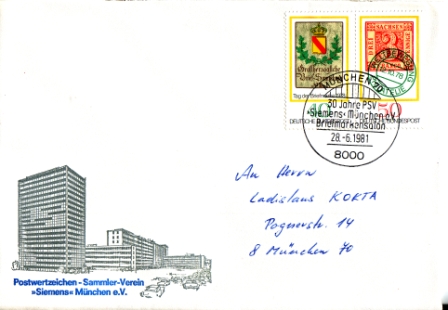 Tag der Briefmarke 1978
40
DEUTSCHE BUNDESPOST
SACHSEN
50
DEUTSCHE BUNDESPOST
MÜNCHEN 70
30 Jahre PSV
»Siemens« München e.V.
Briefmarkensalon
28.-6.1981
8000
An Herrn
Ladislaus KOKTA
Pognerstr. 14
8 München 70
Postwertzeichen - Sammler-Verein
»Siemens« München e.V.